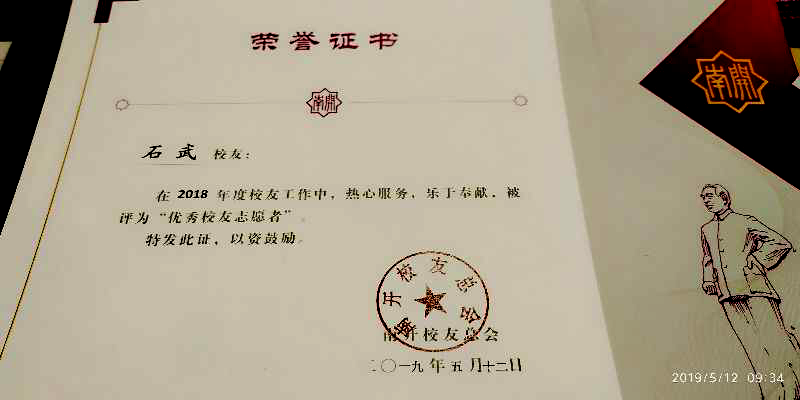 荣誉证书
南開
南開
石武 校友：
在 2018 年度校友工作中，热心服务，乐于奉献，被
评为“优秀校友志愿者”。
特发此证，以资鼓励。
南开校友总会
南开校友总会
二〇一九年五月十二日
2019/5/12 09:34